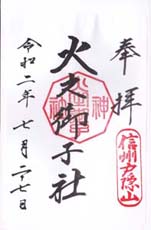 奉拝
信州戸隠山
火之御子社
令和二年七月二十七日